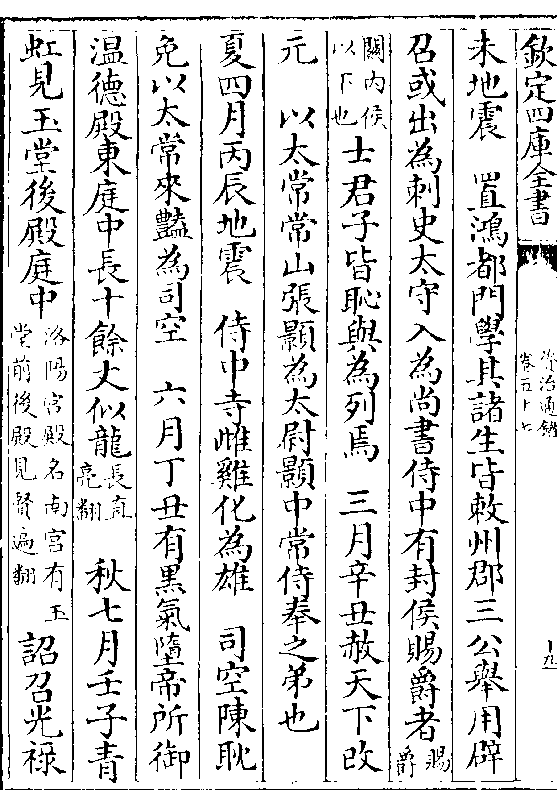 欽定四庫全書 資治通鑑卷五十七 十九
未地震　置鴻都門學其諸生皆敕州郡三公舉用辟
召或出為刺史太守入為尚書侍中有封侯賜爵者賜爵
關内侯以下也士君子皆恥與為列焉　三月辛丑赦天下改
元　以太常常山張顥為太尉顥中常侍奉之弟也
夏四月丙辰地震　侍中寺雌雞化為雄　司空陳耽
免以太常來豔為司空　六月丁丑有黑氣墮帝所御
温德殿東庭中長十餘丈似龍長直亮翻　秋七月壬子青
虹見玉堂後殿庭中洛陽宫殿名南宫有玉堂前後殿見賢遍翻　詔召光禄